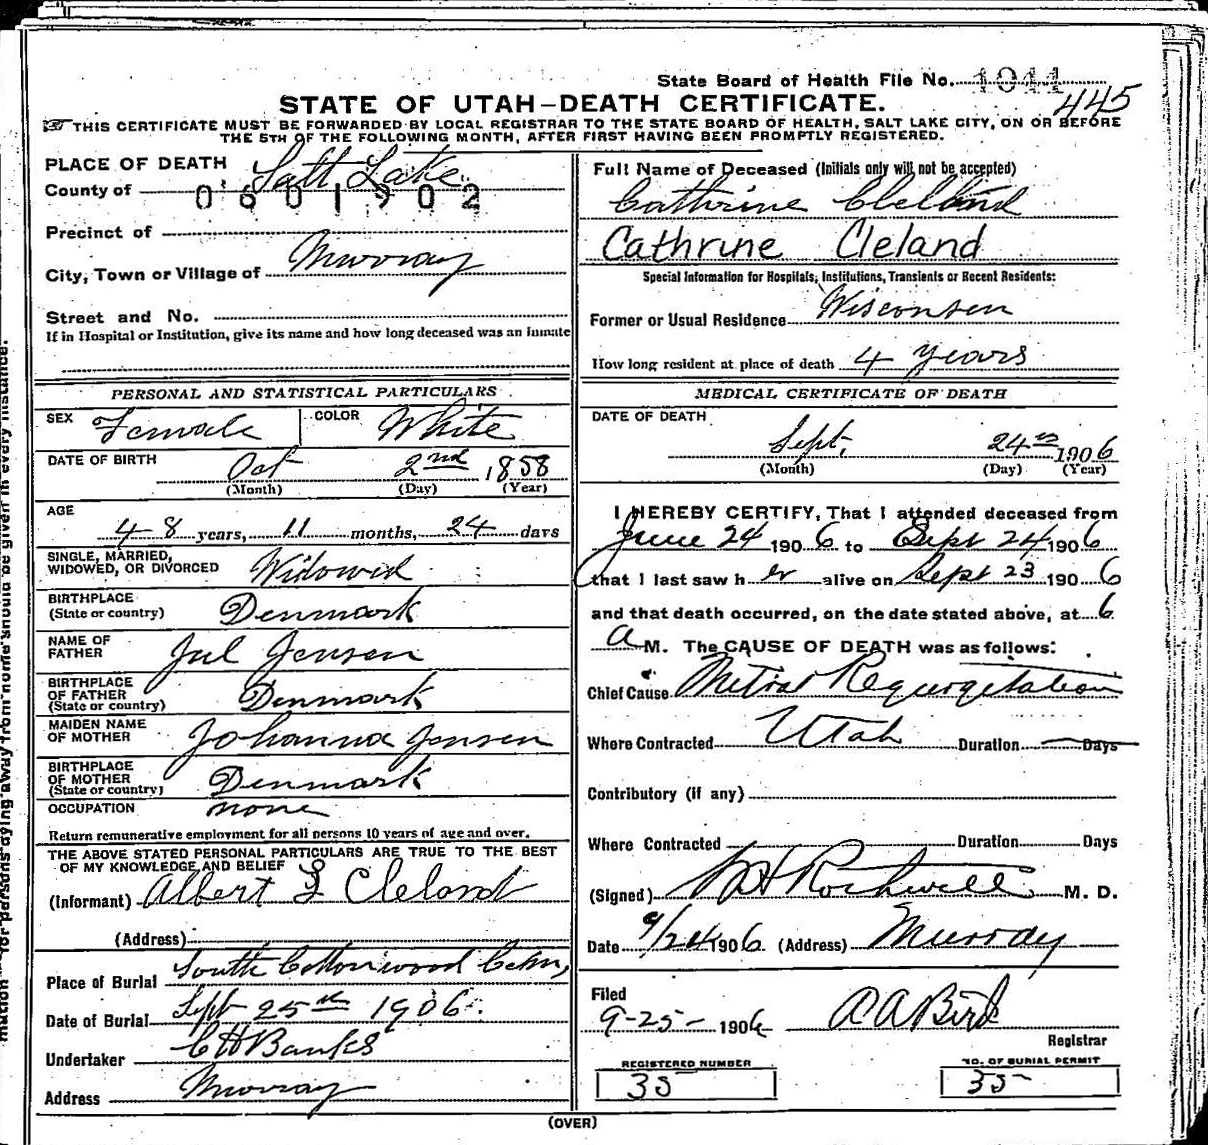 State Board of Health File No. 1041
445
STATE OF UTAH—DEATH CERTIFICATE.
THIS CERTIFICATE MUST BE FORWARDED BY LOCAL REGISTRAR TO THE STATE BOARD OF HEALTH, SALT LAKE CITY, ON OR BEFORE
THE 5TH OF THE FOLLOWING MONTH, AFTER FIRST HAVING BEEN PROMPTLY REGISTERED.
PLACE OF DEATH
County of Salt Lake
0601902
Precinct of
City, Town or Village of Murray
Street and No.
If in Hospital or Institution, give its name and how long deceased was an inmate
PERSONAL AND STATISTICAL PARTICULARS
SEX Female COLOR White
DATE OF BIRTH Oct 2nd 1858
(Month) (Day) (Year)
AGE
48 years, 11 months, 24 days
SINGLE, MARRIED,
WIDOWED, OR DIVORCED Widowed
BIRTHPLACE
(State or country) Denmark
NAME OF
FATHER Jul Jensen
BIRTHPLACE
OF FATHER
(State or country) Denmark
MAIDEN NAME
OF MOTHER Johanna Jensen
BIRTHPLACE
OF MOTHER
(State or country) Denmark
OCCUPATION none
Return remunerative employment for all persons 10 years of age and over.
THE ABOVE STATED PERSONAL PARTICULARS ARE TRUE TO THE BEST
OF MY KNOWLEDGE AND BELIEF
(Informant) Albert L Cleland
(Address)
Place of Burial South Cottonwood Cem,
Date of Burial Sept 25th 1906.
Undertaker C H Banks
Address Murray
Full Name of Deceased (Initials only will not be accepted)
Cathrine Clelland
Cathrine Cleland
Special Information for Hospitals, Institutions, Transients or Recent Residents:
Former or Usual Residence Wisconsen
How long resident at place of death 4 years
MEDICAL CERTIFICATE OF DEATH
DATE OF DEATH
Sept, 24th 1906
(Month) (Day) (Year)
I HEREBY CERTIFY, That I attended deceased from
June 24 1906 to Sept 24 1906
that I last saw her alive on Sept 23 1906
and that death occurred, on the date stated above, at 6
a M. The CAUSE OF DEATH was as follows:
Chief Cause Mitral Regurgitation
Where Contracted Utah Duration Days
Contributory (if any)
Where Contracted Duration Days
(Signed) Rothwell M. D.
Date 9/24 1906 (Address) Murray
Filed
9-25- 1906 A A Bird
Registrar
REGISTERED NUMBER
35
NO. OF BURIAL PERMIT
35
(OVER)